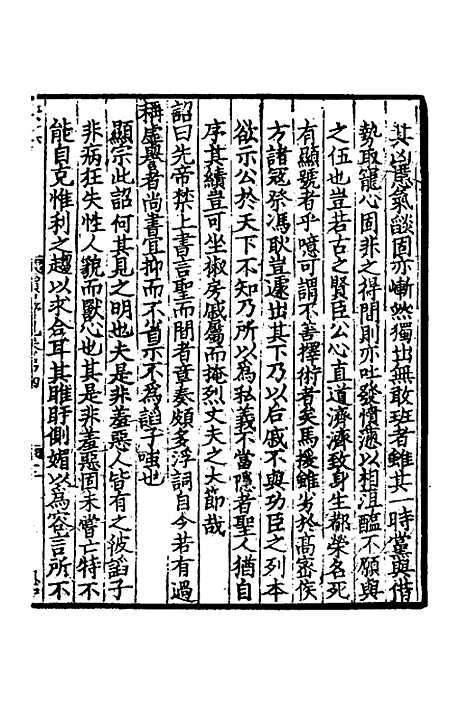 其凶慝氣燄固亦嶄然獨出無敢班者雖其一時黨與借
勢取寵心固非之得間則亦吐發憤懣以相沮醢不願與
之伍也豈若古之賢臣公心直道濟濟致身生都榮名死
有顯號者乎噫可謂不善擇術者矣馬援雖劣於高密侯
方諸寇祭馮耿豈遽出其下乃以后戚不與功臣之列本
欲示公於天下不知乃所以為私義不當隱者聖人猶自
序其績豈可坐椒房戚屬而掩烈丈夫之大節哉
詔曰先帝禁上書言聖而間者章奏頗多浮詞自今若有過
稱虛譽者尚書宜抑而不省示不為諂子嗤也
顯宗此詔何其見之明也夫是非羞惡人皆有之彼諂子
非病狂失性人貌而獸心也其是非羞惡固未嘗亡特不
能自克惟利之趨以求合耳其睢盱側媚以為容言所不